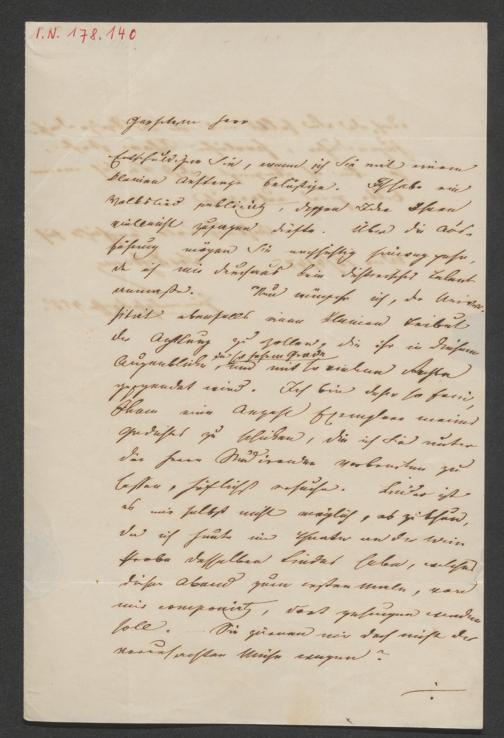 I.N. 178.140
Geehrtester Herr
Entschuldigen Sie, wenn ich Sie mit einem
kleinen Auftrage belästige. Ich habe ein
Volkslied publicirt, dessen Idee Ihnen
vielleicht zusagen dürfte. Über die Aus-
führung mögen Sie nachsichtig hinweg gehen,
da ich mir durchaus kein dichterisches Talent
anmaße. Nun wünsche ich, der Univer-
sität ebenfalls einen kleinen Tribut
der Achtung zu zollen, die ihr in diesem
Augenblicke in so hohem Grade und mit so vielem Rechte
gespendet wird. Ich bin daher so frei,
Ihnen eine Anzahl Exemplare meines
Gedichtes zu schicken, die ich Sie unter
die Herrn Studirenden verbreiten zu
lassen, höflichst ersuche. Leider ist
es mir selbst nicht möglich, es zu thun,
da ich heute im Theater an der Wien
Probe desselben Liedes habe, welches
diesen Abend zum ersten Male, von
mir componirt, dort gesungen werden
soll. Sie zürnen mir doch nicht der
verursachten Mühe wegen?